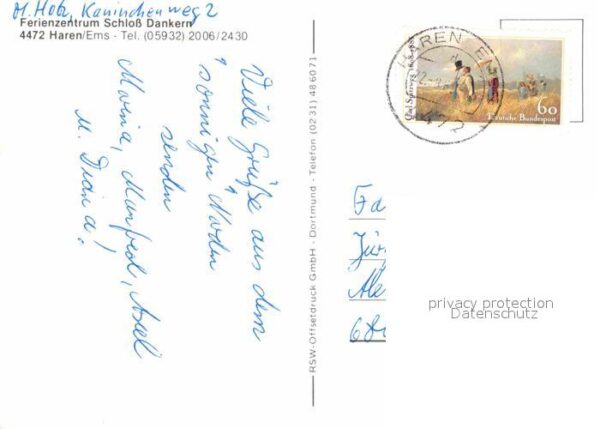 M. Hotz, Kaninchenweg 2
Ferienzentrum Schloß Dankern
4472 Haren/Ems - Tel. (05932) 2006/2430
Viele Grüße aus dem
sonnigen Norden
senden
Marina, Manfred, Axel
u. Diana!
RSW-Offsetdruck GmbH - Dortmund - Telefon (0231) 486071
HAREN, E
Carl Spitzweg 1808-1885
60
Deutsche Bundespost
Fa
Jür
Ale
68
privacy protection
Datenschutz